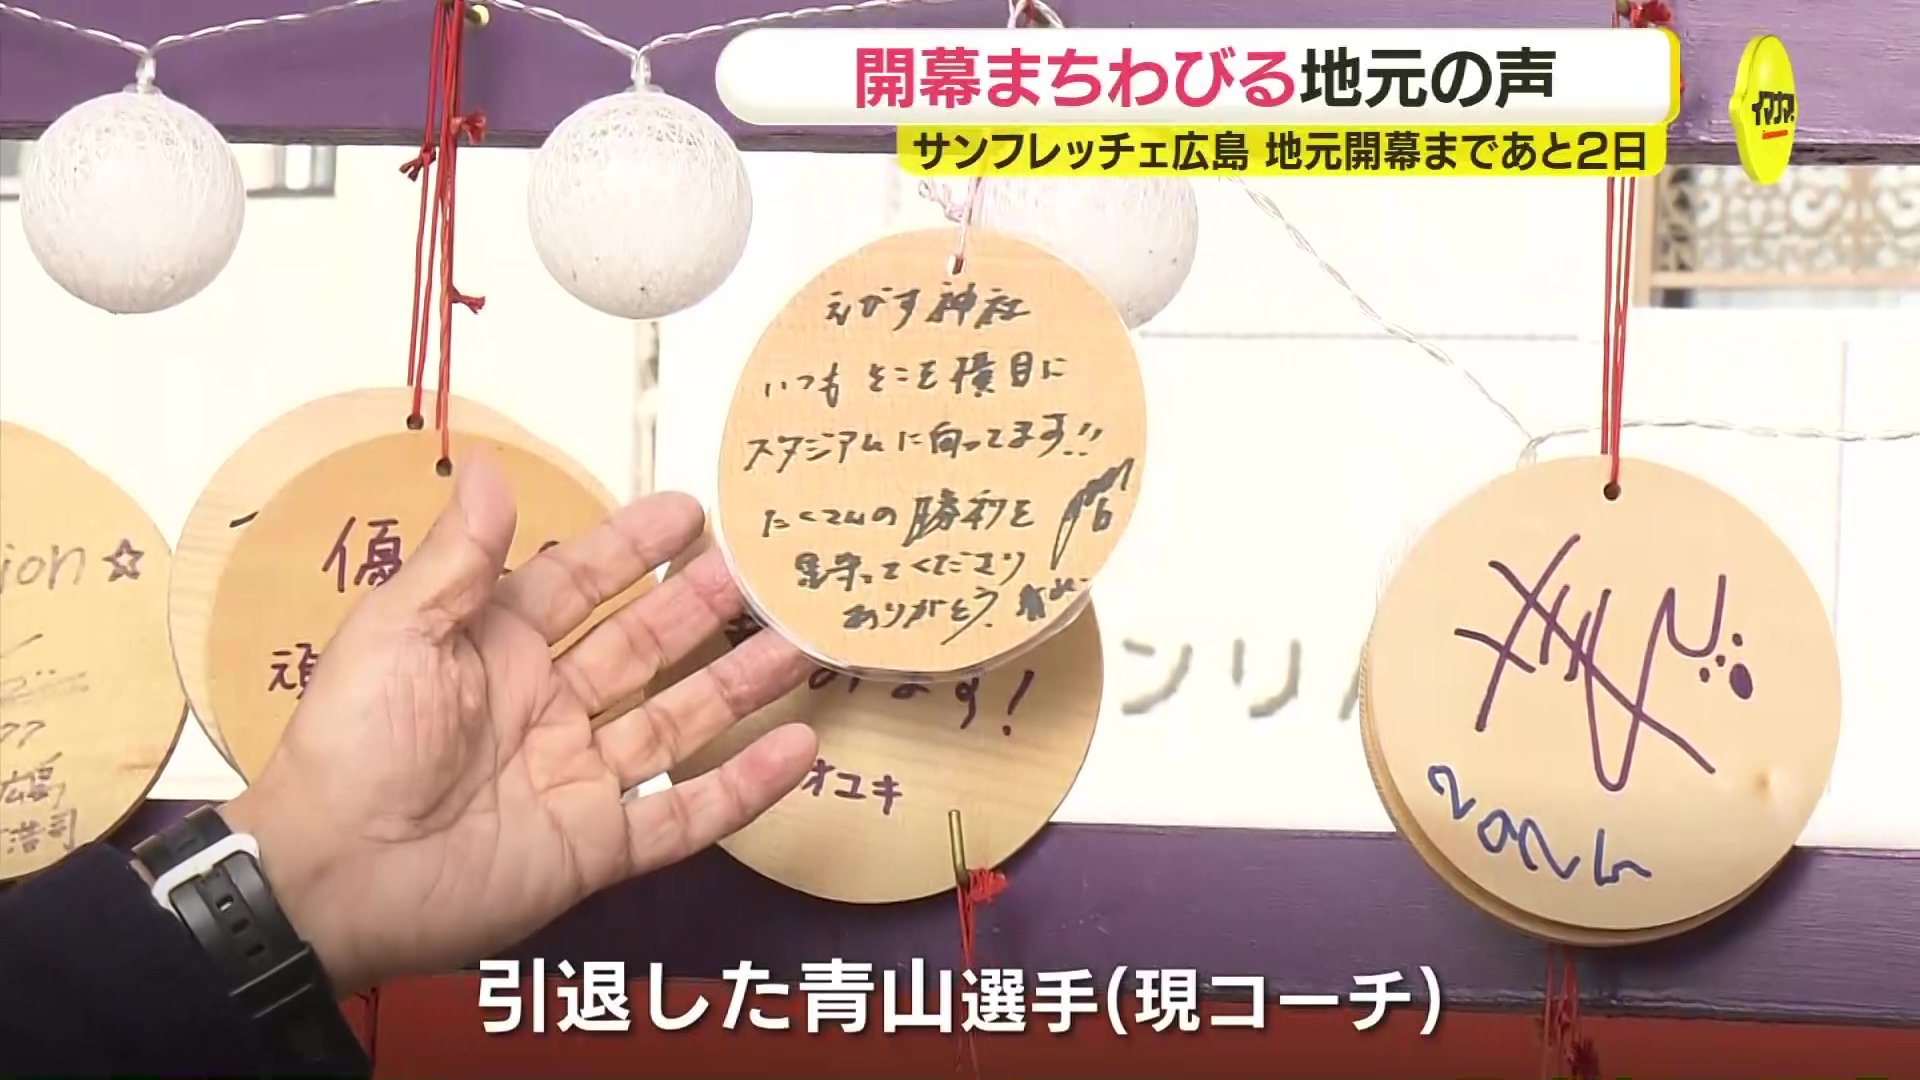 開幕まちわびる地元の声
サンフレッチェ広島 地元開幕まであと2日
イマナマ!
えがす神社
いつもそこを横目に
スタジアムに向ってます!!
たくさんの勝利を
見守ってくださり
ありがとう。
ion☆
広島
浩司
優
頑
ます!
オユキ
ンリ
2024
引退した青山選手(現コーチ)